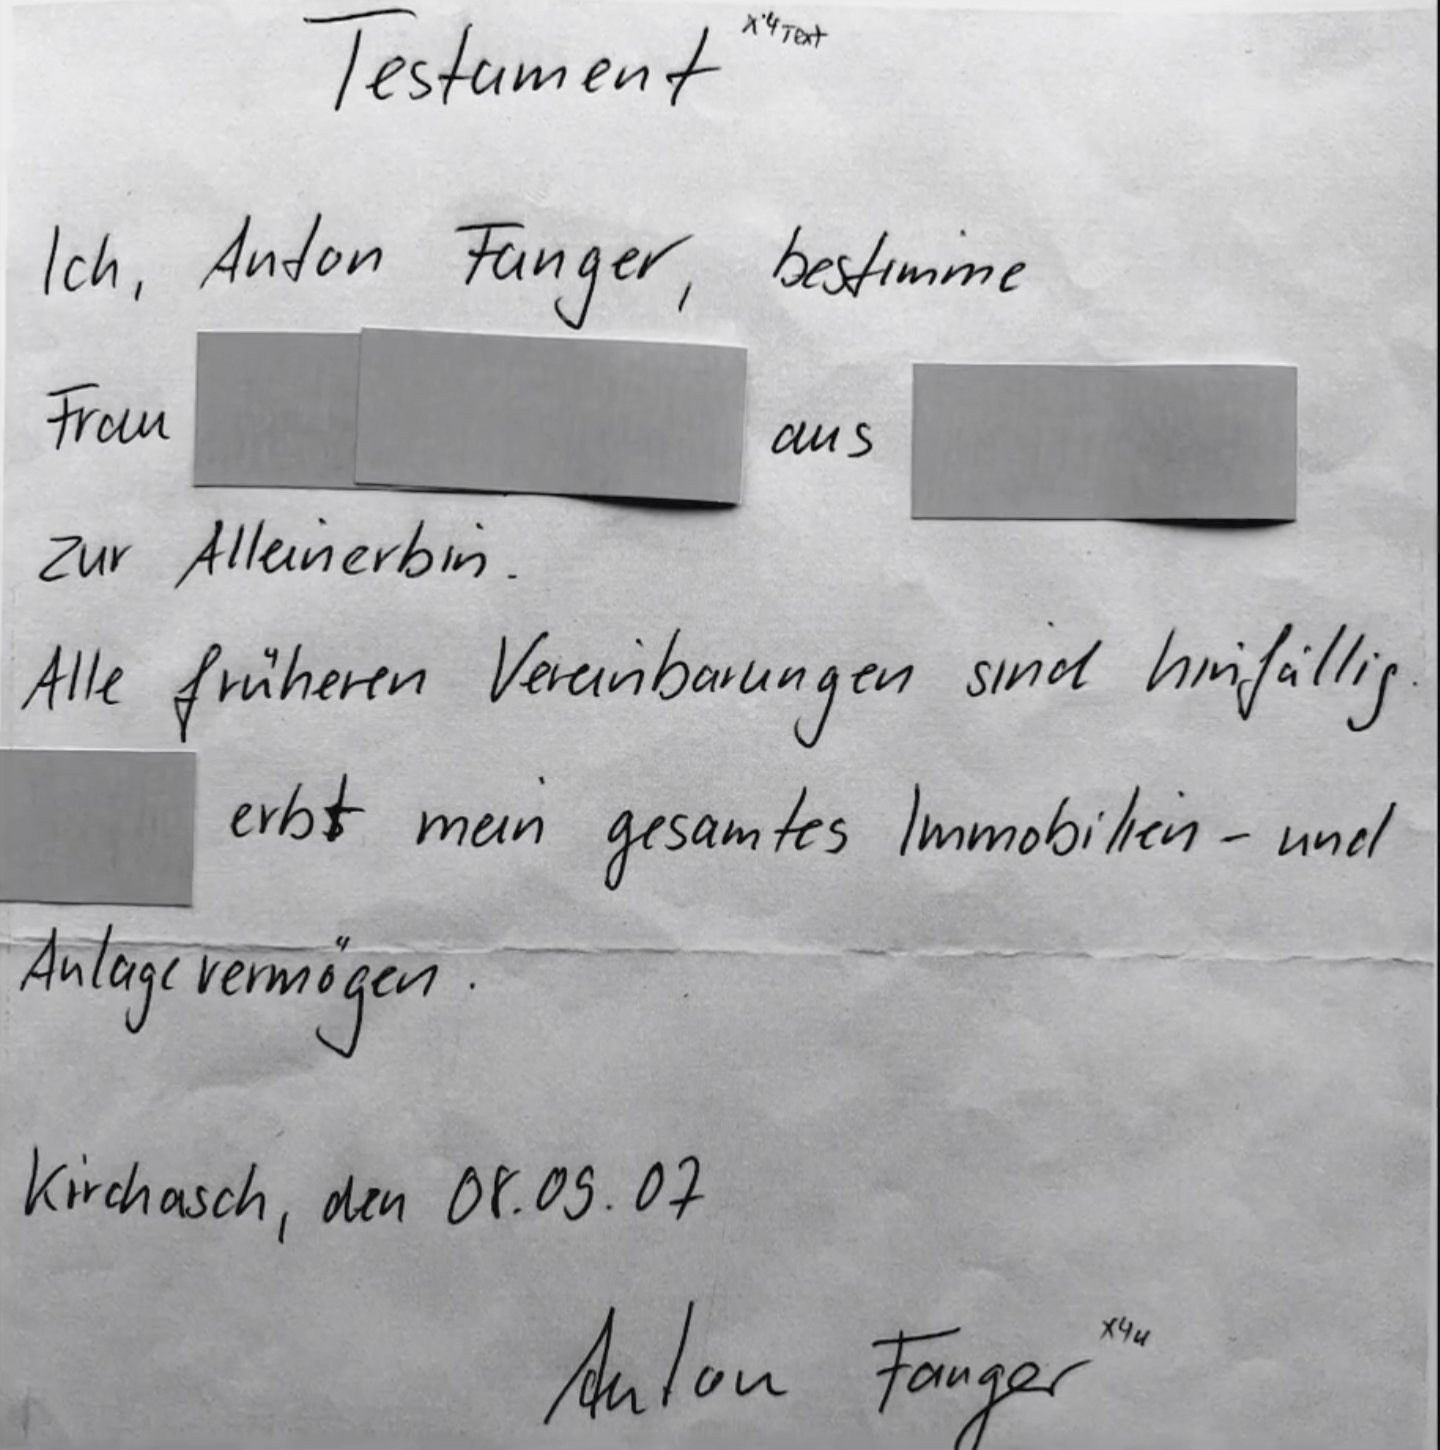 Testament x4Text
Ich, Anton Fanger, bestimme
Frau aus
zur Alleinerbin.
Alle früheren Vereinbarungen sind hinfällig.
erbt mein gesamtes Immobilien- und
Anlagevermögen.
Kirchasch, den 08.09.07
Anton Fanger x4u